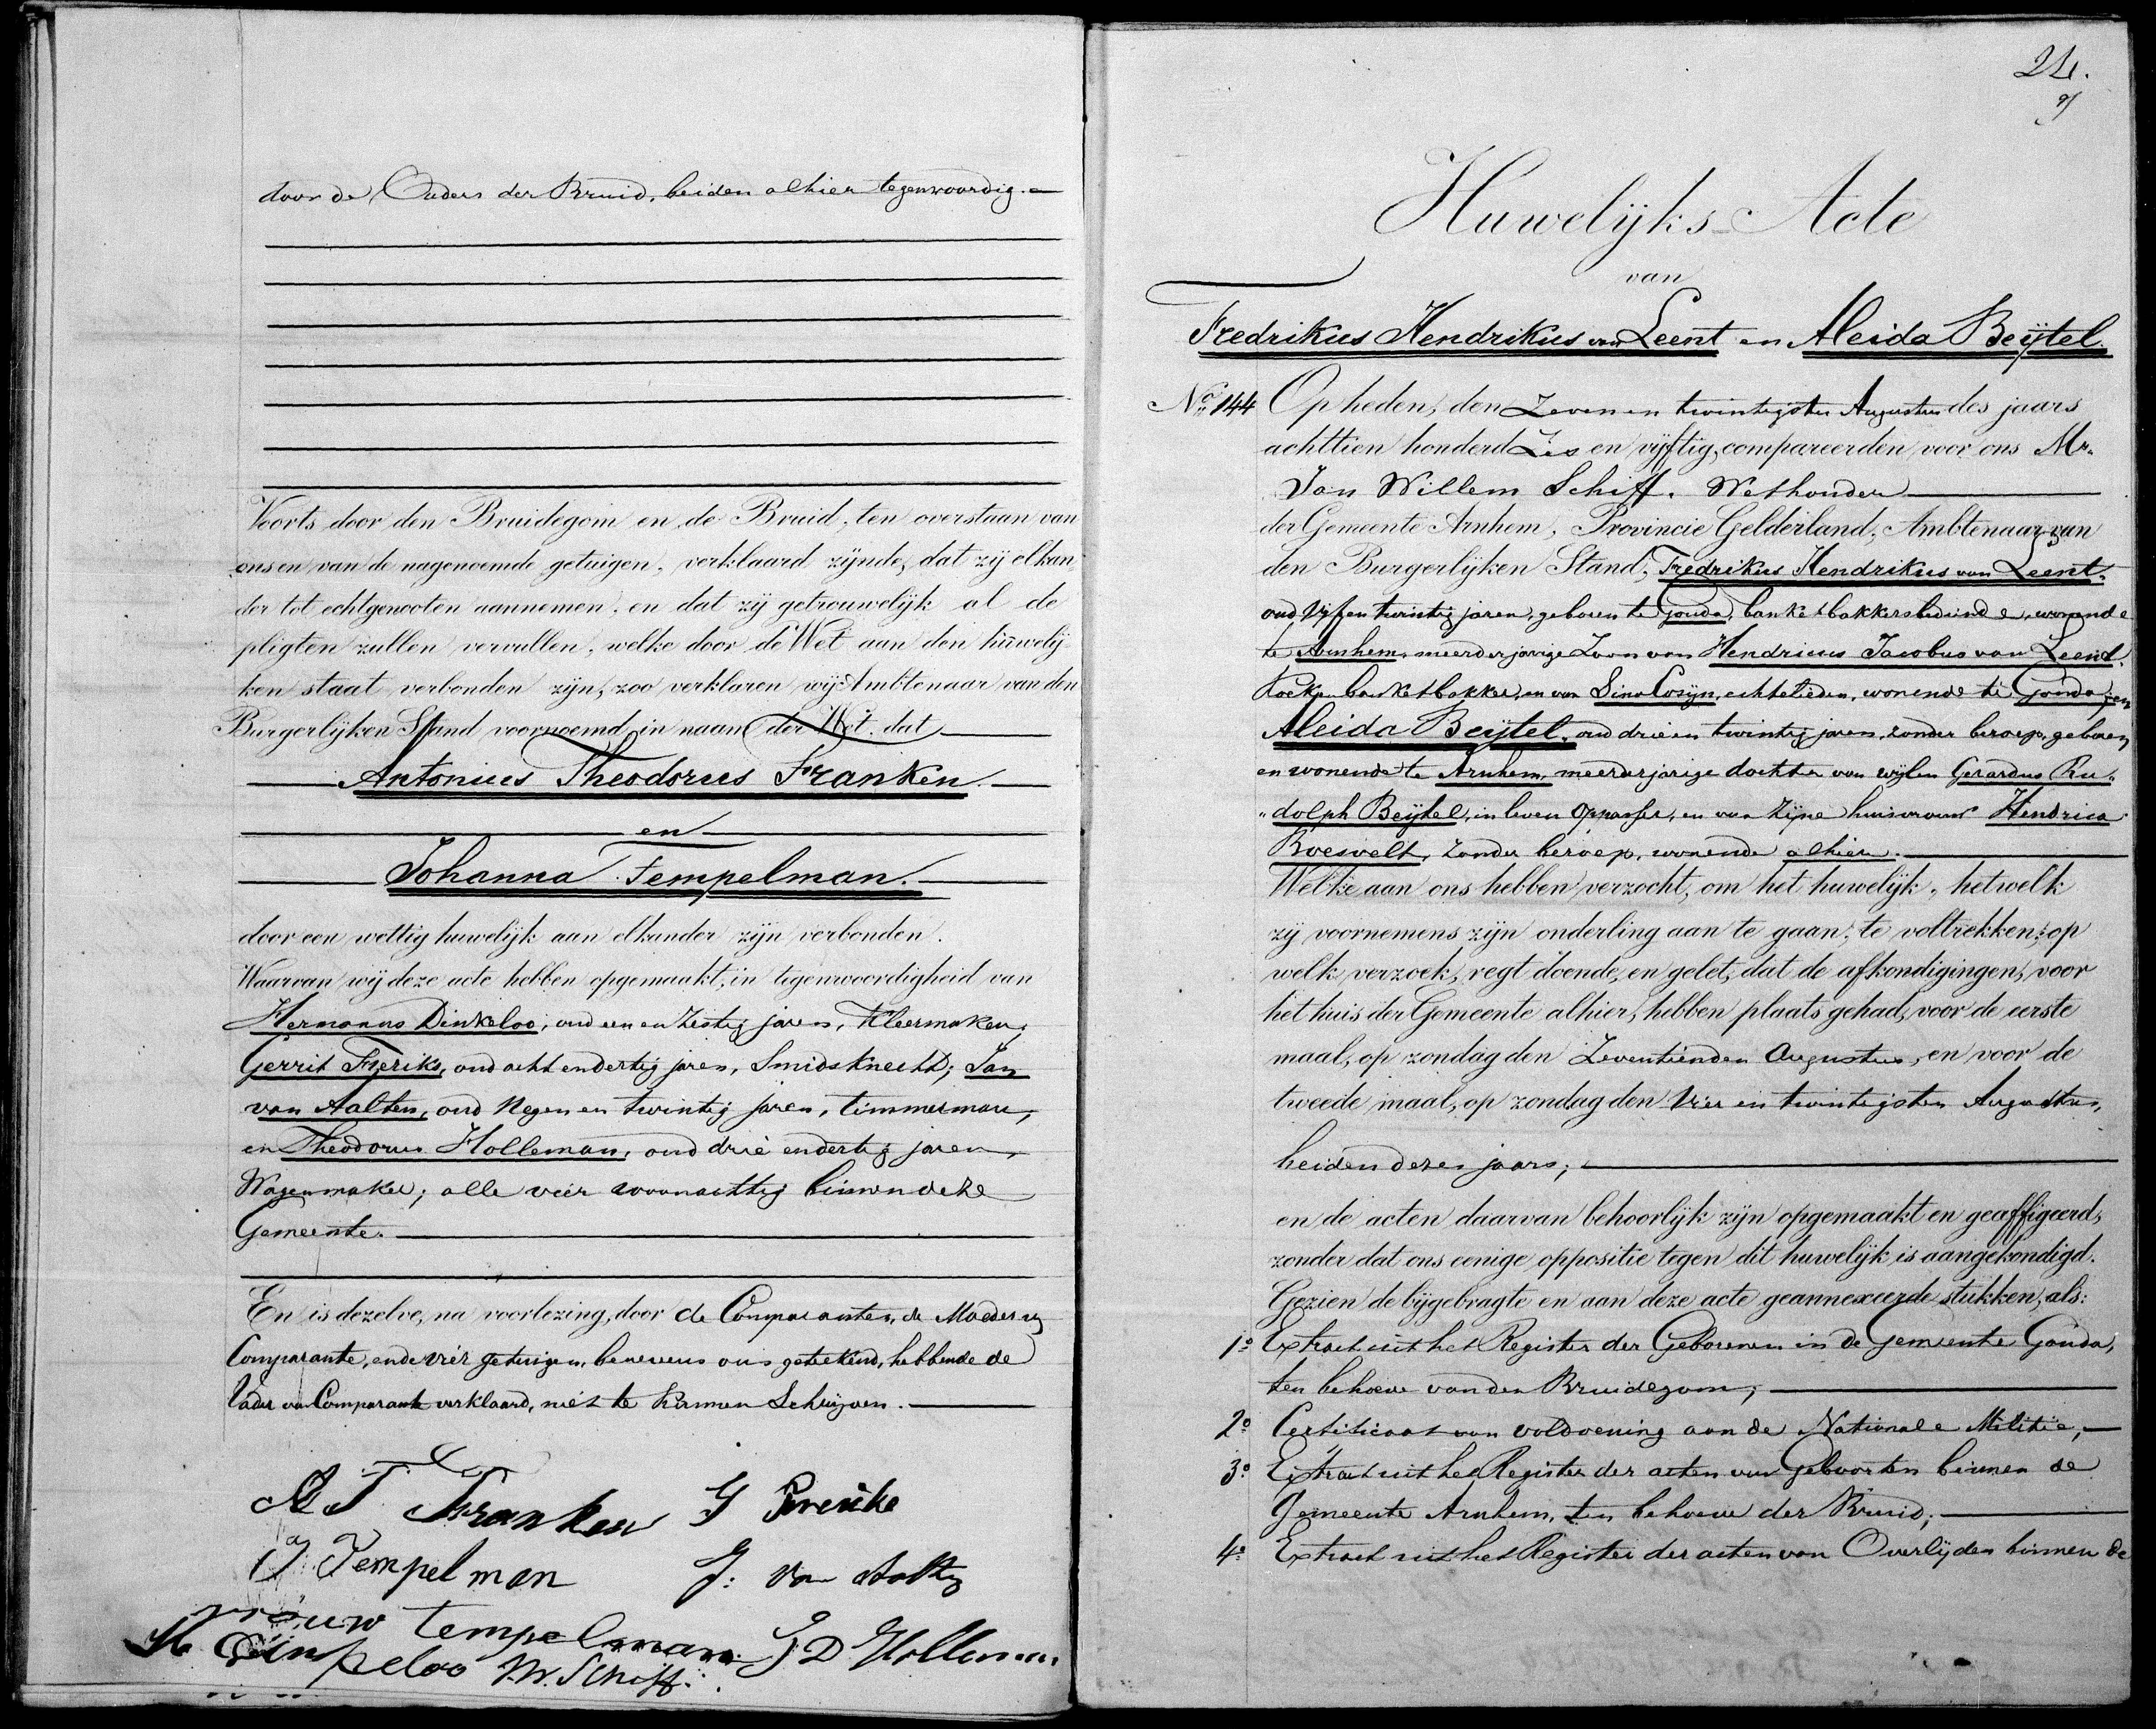 door de Ouders der Bruid, beiden alhier tegenwoordig.
Voorts door den Bruidegom en de Bruid, ten overstaan van
ons en van de nagenoemde getuigen, verklaard zijnde, dat zij elkan
der tot echtgenooten aannemen, en dat zij getrouwelijk al de
pligten zullen vervullen, welke door de Wet aan den huwelij-
ken staat verbonden zijn, zoo verklaren wij Ambtenaar van den
Burgerlijken Stand voornoemd in naam der Wet, dat
Antonius Theodorus Franken
en
Johanna Tempelman.
door een wettig huwelijk aan elkander zijn verbonden.
Waarvan wij deze acte hebben opgemaakt, in tegenwoordigheid van
Hermanus Dinkeloo, oud een en zestig jaren, Kleermaker,
Gerrit Freriks, oud acht en dertig jaren, Smidsknecht; Jan
van Aalten, oud Negen en twintig jaren, timmerman,
en Theodorus Holleman, oud drie en dertig jaren,
Wagenmaker; alle vier woonachtig binnen deze
Gemeente.
En is dezelve, na voorlezing, door de Comparanten, de Moeder van
Comparante, en de vier getuigen, benevens ons geteekend, hebbende de
Vader van Comparante verklaard, niet te kunnen Schrijven.
A T Franken G Frerike
J Tempelman J: van Aalten
vrouw tempelman T D Holleman
H Dinkeloo J.W. Schiff.
24.
Huwelijks-Acte
van
Fredrikus Hendrikus van Leent en Aleida Beijtel.
No. 144 Op heden, den Zeven en twintigsten Augustus des jaars
achttien honderd Zes en vijftig, compareerden voor ons Mr.
Jan Willem Schiff, Wethouder
der Gemeente Arnhem, Provincie Gelderland, Ambtenaar van
den Burgerlijken Stand, Fredrikus Hendrikus van Leent,
oud Vijf en twintig jaren, geboren te Gouda, banketbakkersbediende, wonende
te Arnhem, meerderjarige Zoon van Hendricus Jacobus van Leent,
Koek en banketbakker, en van Sina Cosijn, echtelieden, wonende te Gouda; en
Aleida Beijtel, oud drie en twintig jaren, zonder beroep, geboren
en wonende te Arnhem, meerderjarige dochter van wijlen Gerardus Ru-
dolph Beijtel, in leven Oppasser, en van Zijne huisvrouw Hendrica
Roesvelt, Zonder beroep, wonende alhier.
Welke aan ons hebben verzocht, om het huwelijk, hetwelk
zij voornemens zijn onderling aan te gaan, te voltrekken; op
welk verzoek, regt doende, en gelet, dat de afkondigingen, voor
het huis der Gemeente alhier, hebben plaats gehad, voor de eerste
maal, op zondag den Zeventienden Augustus, en voor de
tweede maal, op zondag den Vier en twintigsten Augustus,
beiden dezes jaars;
en de acten daarvan behoorlijk zijn opgemaakt en geaffigeerd,
zonder dat ons eenige oppositie tegen dit huwelijk is aangekondigd.
Gezien de bijgebragte en aan deze acte geannexeerde stukken, als:
1o. Extract uit het Register der Geborenen in de Gemeente Gouda,
ten behoeve van den Bruidegom;
2o. Certificaat van voldoening aan de Nationale Militie;
3o. Extract uit het Register der acten van Geboorten binnen de
Gemeente Arnhem, ten behoeve der Bruid;
4o. Extract uit het Register der acten van Overlijden binnen de